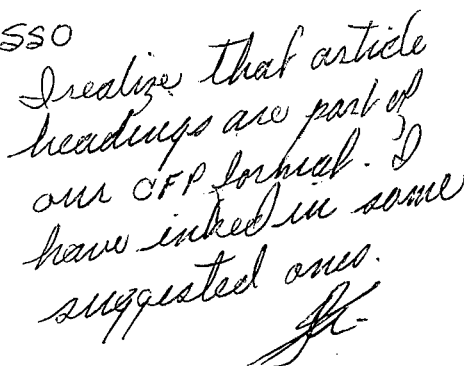 SSO
I realize that article
headings are part of
our CFP format. I
have inked in some
suggested ones.